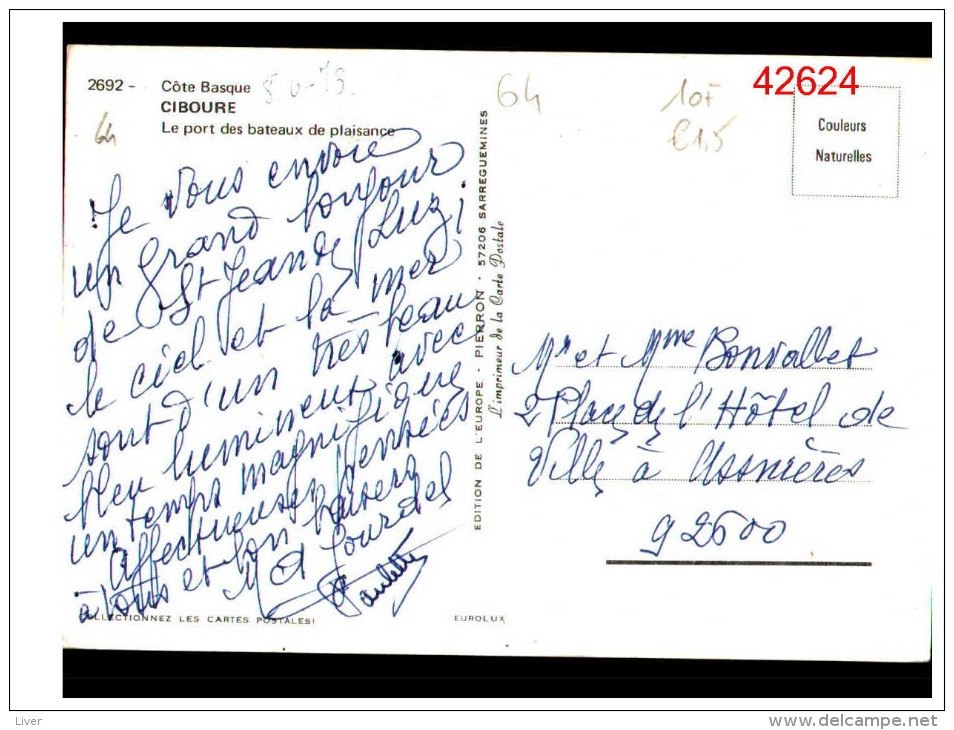 42624
2692 - Côte Basque
CIBOURE
Le port des bateaux de plaisance
64
64
10F
€1,5
Couleurs
Naturelles
Je vous envoie
un grand bonjour
de St Jean de Luz ;
le ciel et la mer
sont d'un très beau
bleu lumineux avec
un temps magnifique
Affectueuses pensées
à vous et bon baisers
Paulette
EDITION DE L'EUROPE - PIERRON - 57206 SARREGUEMINES
L'imprimeur de la Carte Postale
Mr et Mme Bonvallet
2 Place de l'Hôtel de
Ville à Assnières
92600
COLLECTIONNEZ LES CARTES POSTALES!
EUROLUX
Liver
delcampe.net